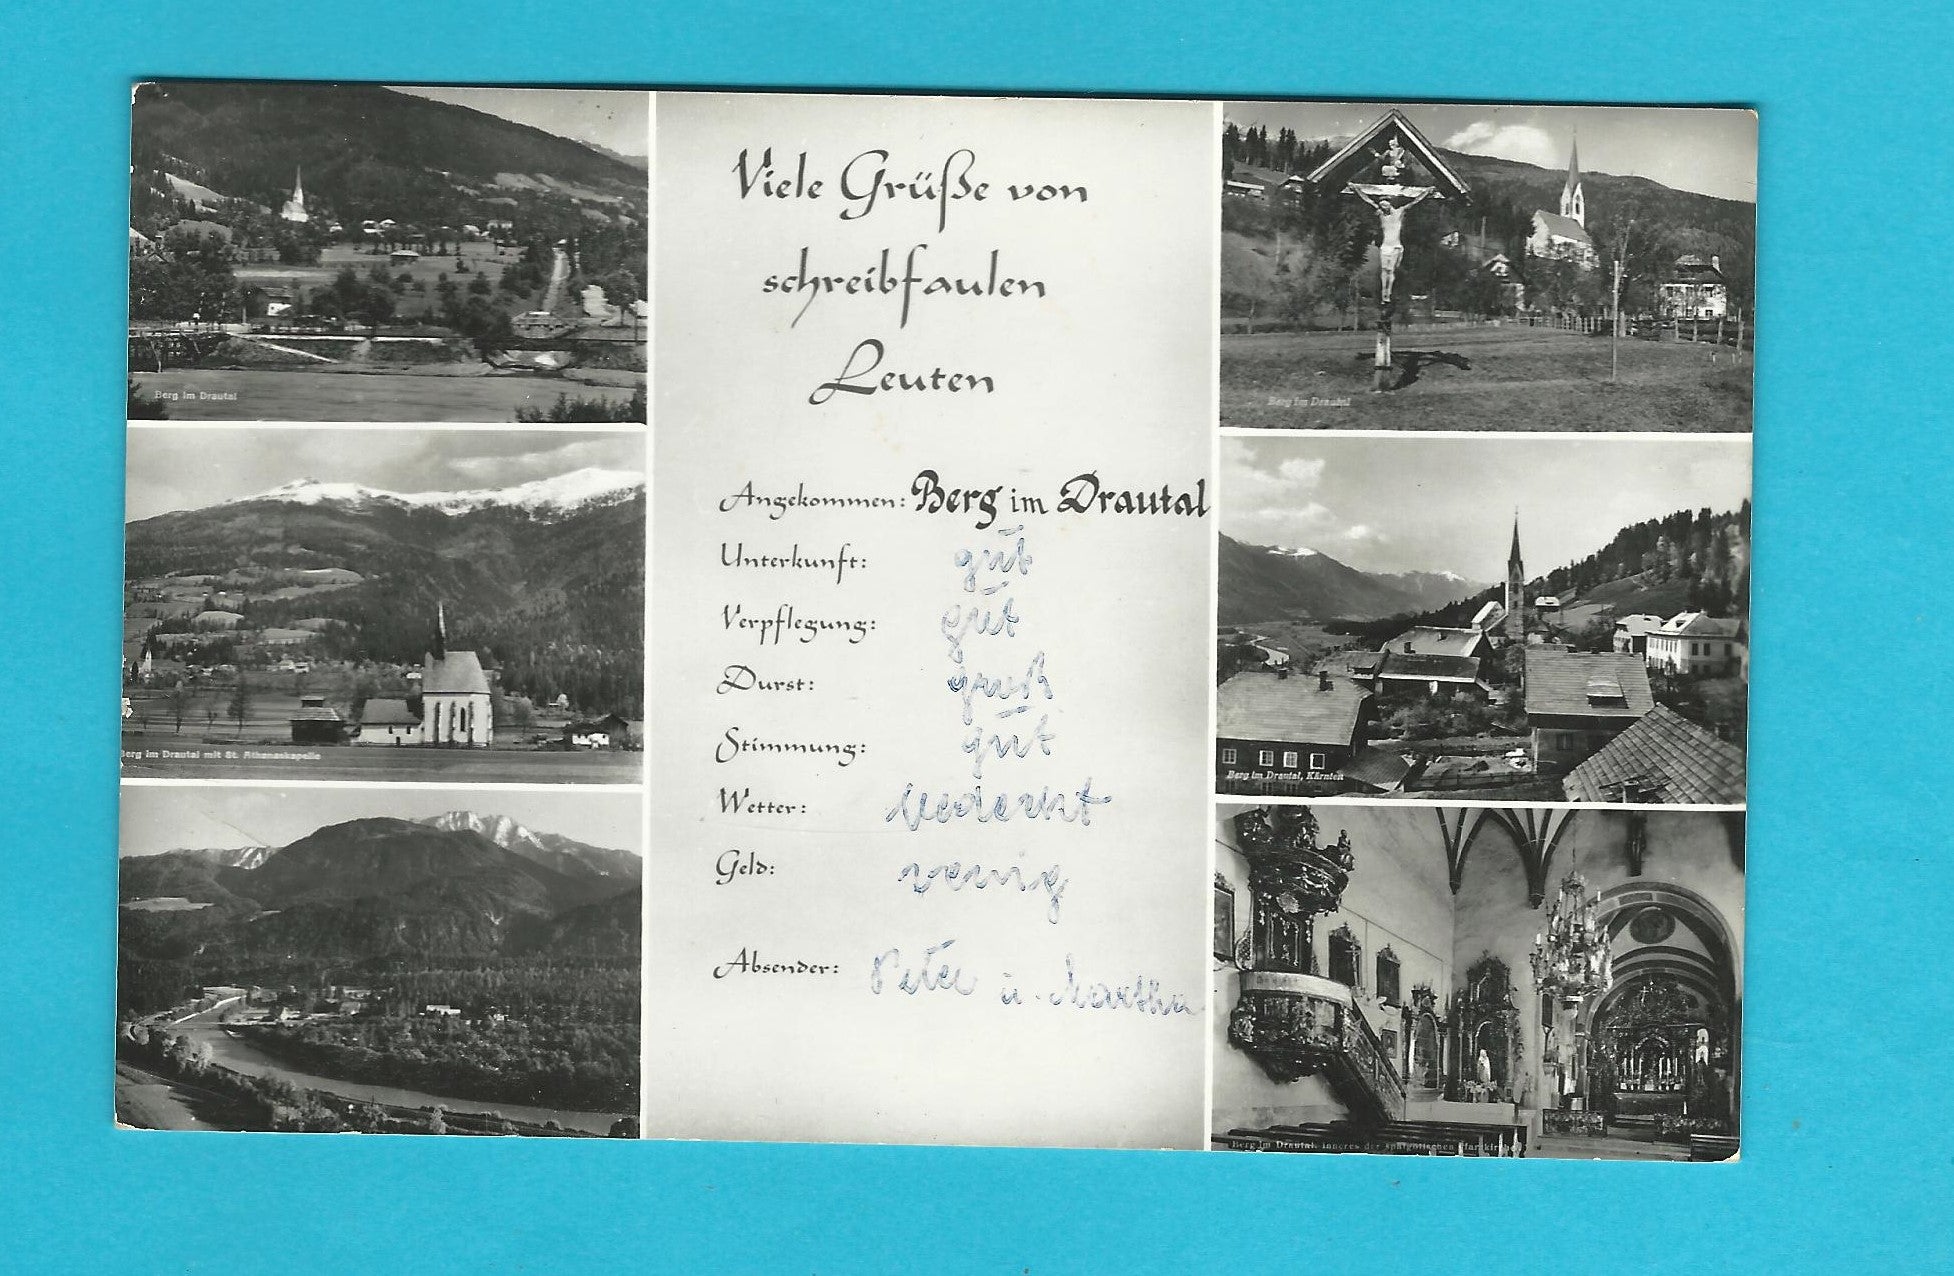 Viele Grüße von
schreibfaulen
Leuten
Angekommen: Berg im Drautal
Unterkunft: gut
Verpflegung: gut
Durst: groß
Stimmung: gut
Wetter: bedeckt
Geld: wenig
Absender: Peter u. Martha
Berg im Drautal
Berg im Drautal mit St. Athanaskapelle
Berg im Drautal
Berg im Drautal, Kärnten
Berg im Drautal, Inneres der spätgotischen Pfarrkirche